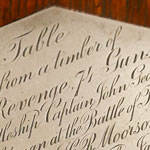 Table
from a timber of
Revenge, 74 Guns
Captain John
at the Battle of
R Moorsom